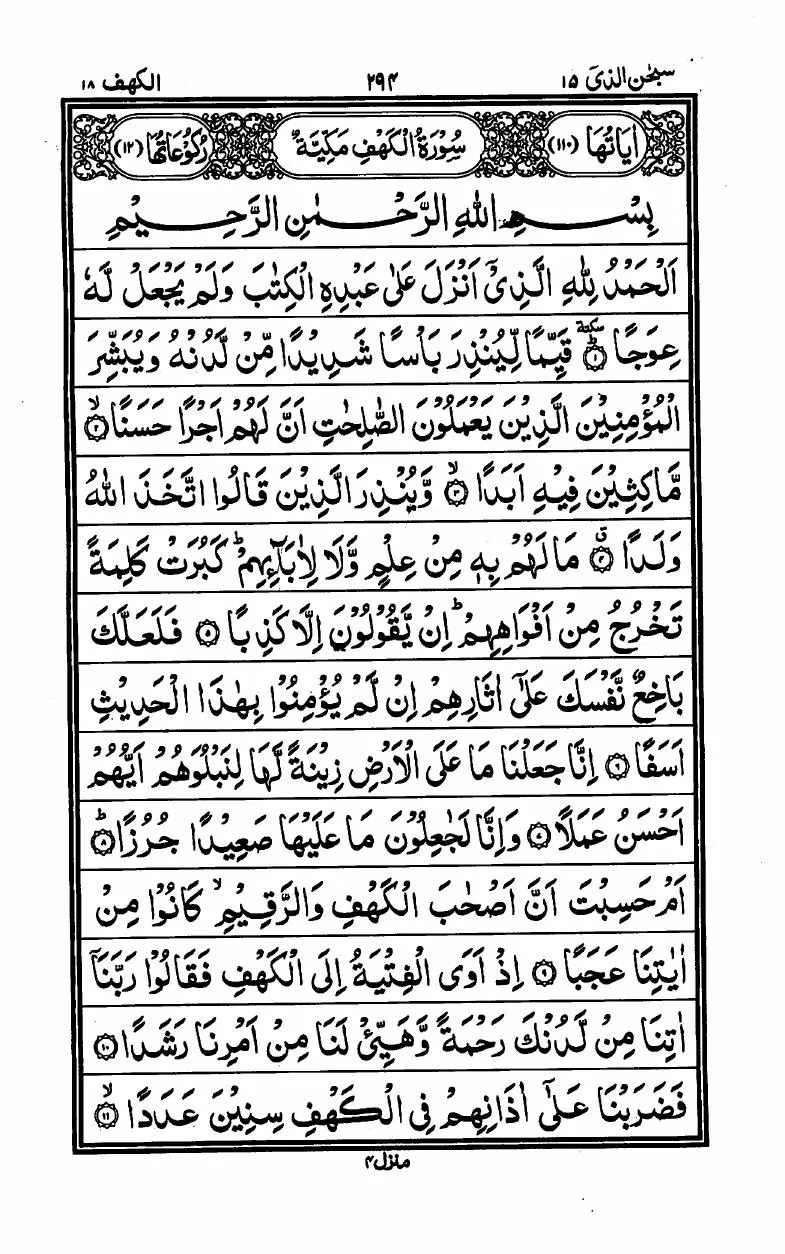 سبحٰن الذی ۱۵ ۲۹۴ الکهف ۱۸
اٰيَاتُهَا (۱۱۰) سُوْرَةُ الْكَهْفِ مَكِّيَّةٌ رُكُوْعَاتُهَا (۱۲)
بِسْمِ اللّٰهِ الرَّحْمٰنِ الرَّحِيْمِ
اَلْحَمْدُ لِلّٰهِ الَّذِيْٓ اَنْزَلَ عَلٰى عَبْدِهِ الْكِتٰبَ وَلَمْ يَجْعَلْ لَّهٗ
عِوَجًا ؕ سكتة ۱ قَيِّمًا لِّيُنْذِرَ بَاْسًا شَدِيْدًا مِّنْ لَّدُنْهُ وَيُبَشِّرَ
الْمُؤْمِنِيْنَ الَّذِيْنَ يَعْمَلُوْنَ الصّٰلِحٰتِ اَنَّ لَهُمْ اَجْرًا حَسَنًا ۙ ۲
مَّاكِثِيْنَ فِيْهِ اَبَدًا ۙ ۳ وَّيُنْذِرَ الَّذِيْنَ قَالُوا اتَّخَذَ اللّٰهُ
وَلَدًا ۗ ۴ مَا لَهُمْ بِهٖ مِنْ عِلْمٍ وَّلَا لِاٰبَآئِهِمْ ؕ كَبُرَتْ كَلِمَةً
تَخْرُجُ مِنْ اَفْوَاهِهِمْ ؕ اِنْ يَّقُوْلُوْنَ اِلَّا كَذِبًا ۵ فَلَعَلَّكَ
بَاخِعٌ نَّفْسَكَ عَلٰٓى اٰثَارِهِمْ اِنْ لَّمْ يُؤْمِنُوْا بِهٰذَا الْحَدِيْثِ
اَسَفًا ۶ اِنَّا جَعَلْنَا مَا عَلَى الْاَرْضِ زِيْنَةً لَّهَا لِنَبْلُوَهُمْ اَيُّهُمْ
اَحْسَنُ عَمَلًا ۷ وَاِنَّا لَجٰعِلُوْنَ مَا عَلَيْهَا صَعِيْدًا جُرُزًا ؕ ۸
اَمْ حَسِبْتَ اَنَّ اَصْحٰبَ الْكَهْفِ وَالرَّقِيْمِ ۙ كَانُوْا مِنْ
اٰيٰتِنَا عَجَبًا ۹ اِذْ اَوَى الْفِتْيَةُ اِلَى الْكَهْفِ فَقَالُوْا رَبَّنَآ
اٰتِنَا مِنْ لَّدُنْكَ رَحْمَةً وَّهَيِّئْ لَنَا مِنْ اَمْرِنَا رَشَدًا ۱۰
فَضَرَبْنَا عَلٰٓى اٰذَانِهِمْ فِى الْكَهْفِ سِنِيْنَ عَدَدًا ۙ ۱۱
منزل ۴